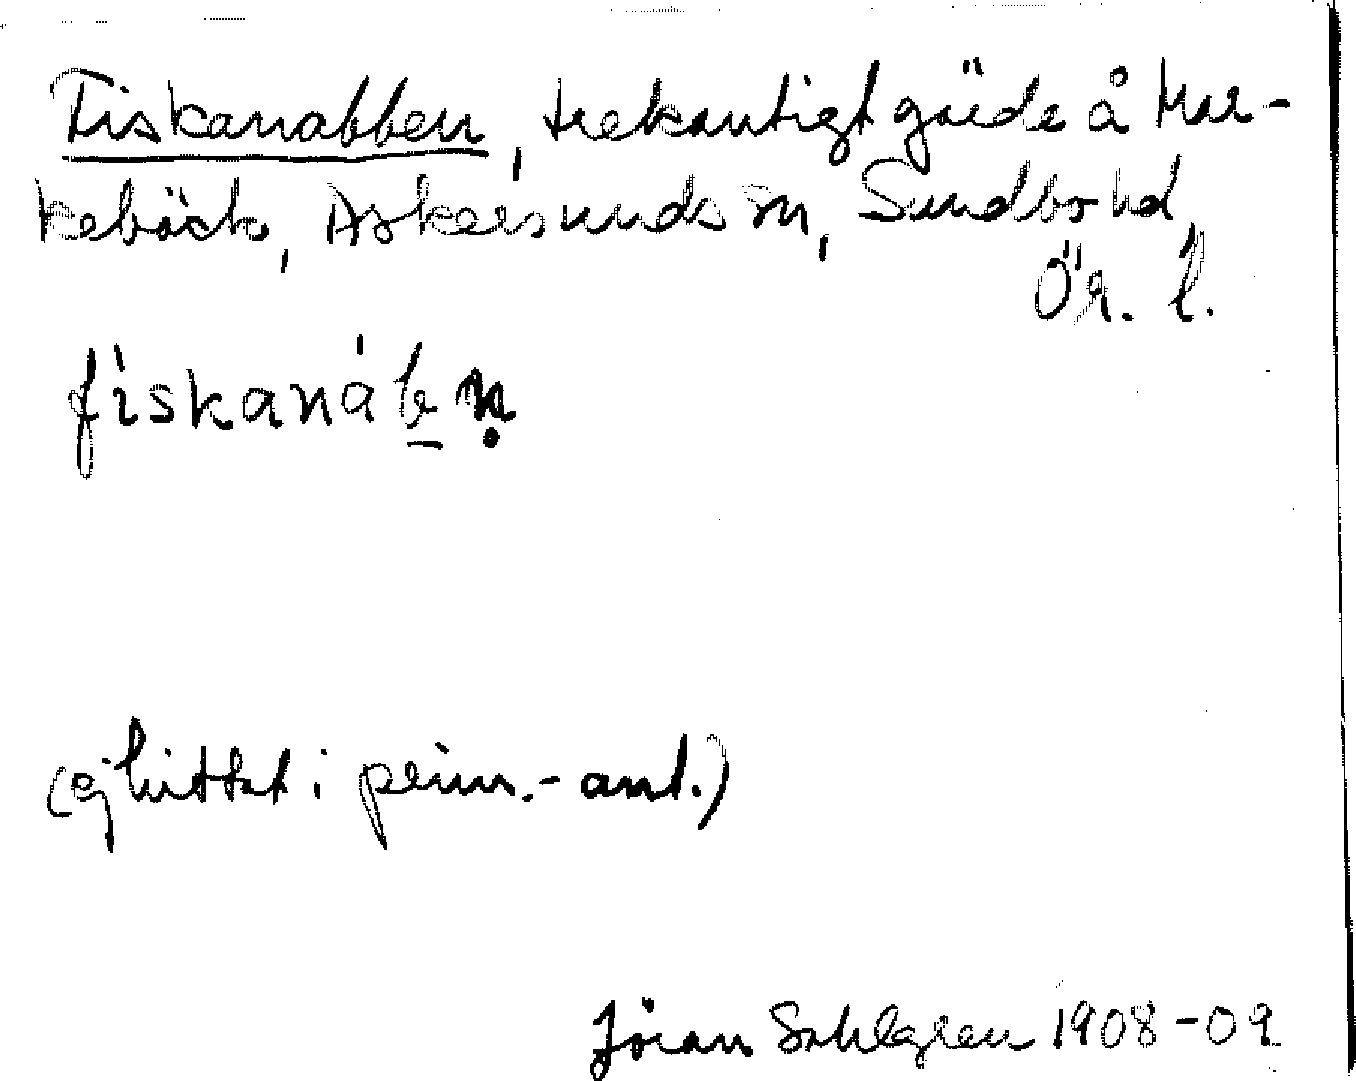 Fiskanabben, trekantigt gärde å Mar-
kebäck, Askersunds sn, Sundbo hd,
Ör. l.
fiskanábn̥
(ej hittat i prim.-ant.)
Jöran Sahlgren 1908-09